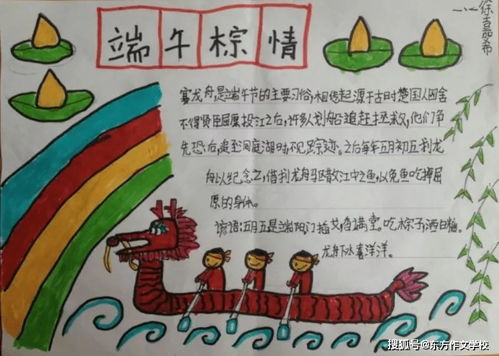 端午棕情
赛龙舟,是端午节的主要习俗,相传起源于古时楚国人因舍
不得贤臣屈原投江之后,许多人划船追赶拯救,他们争
先恐后,追至洞庭湖时不见踪迹。之后每年五月初五划龙
舟以纪念之,借划龙舟驱散江中之鱼,以免鱼吃掉屈
原的身体。
谚语:五月五是端阳,门插艾,香满堂。吃粽子,洒白糖。
龙舟下水喜洋洋。
搜狐号@东方作文学校